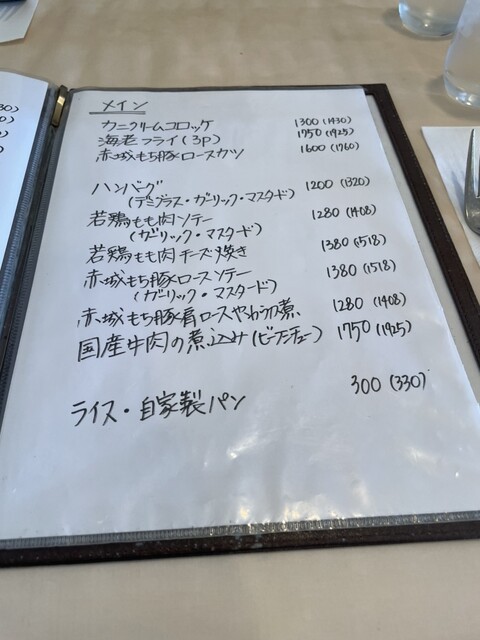 メイン
カニクリームコロッケ 1300 (1430)
海老フライ (3p) 1750 (1925)
赤城もち豚ロースカツ 1600 (1760)
ハンバーグ 1200 (1320)
(デミグラス・ガーリック・マスタード)
若鶏もも肉ソテー 1280 (1408)
(ガーリック・マスタード)
若鶏もも肉チーズ焼き 1380 (1518)
赤城もち豚ロースソテー 1380 (1518)
(ガーリック・マスタード)
赤城もち豚肩ロースやわらか煮 1280 (1408)
国産牛肉の煮込み(ビーフシチュー) 1750 (1925)
ライス・自家製パン 300 (330)